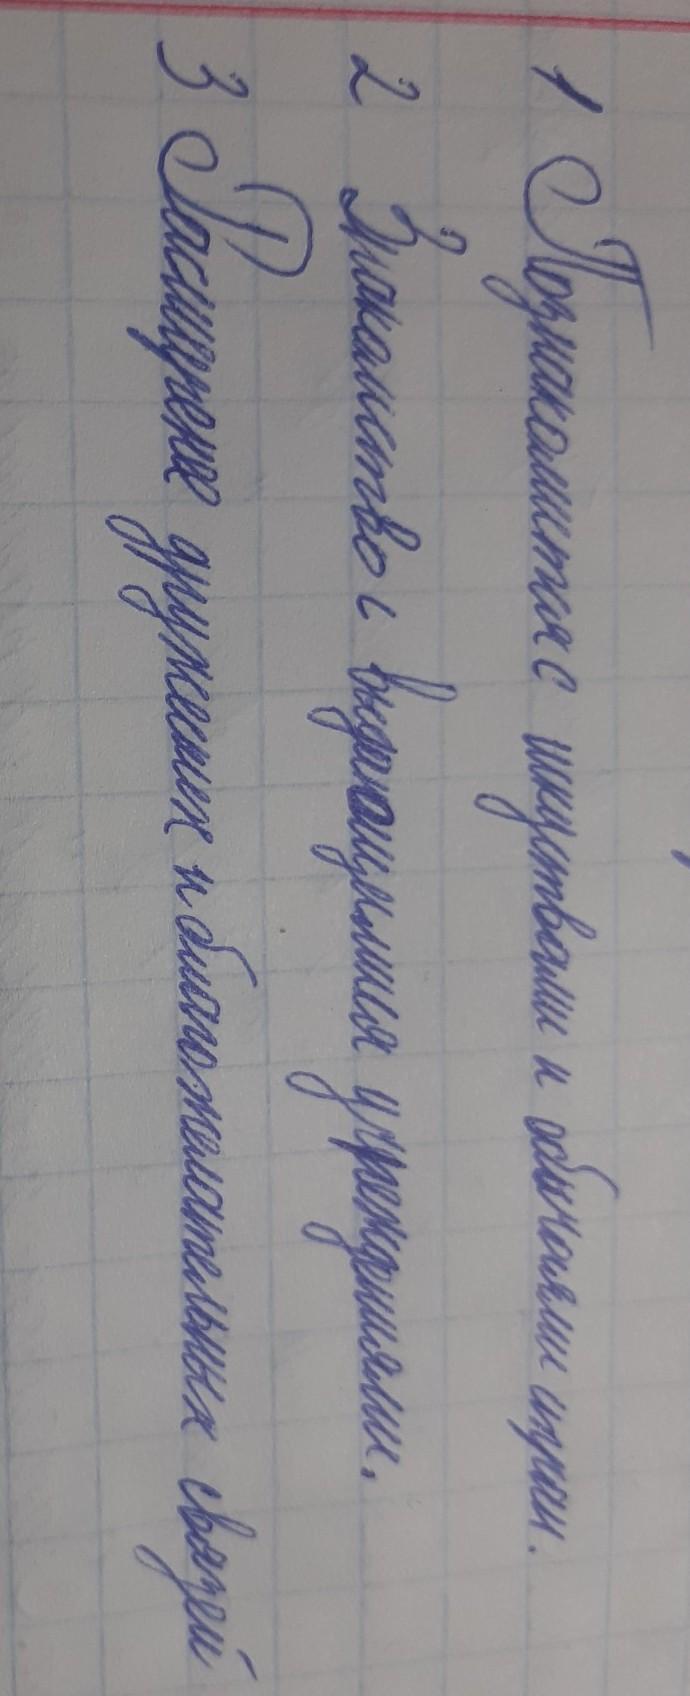 1 Познакомится с искуствами и обычаями стран.
2 Знакомство с выдающимися учреждениями.
3 Расширение дружеских и благожелательных связей